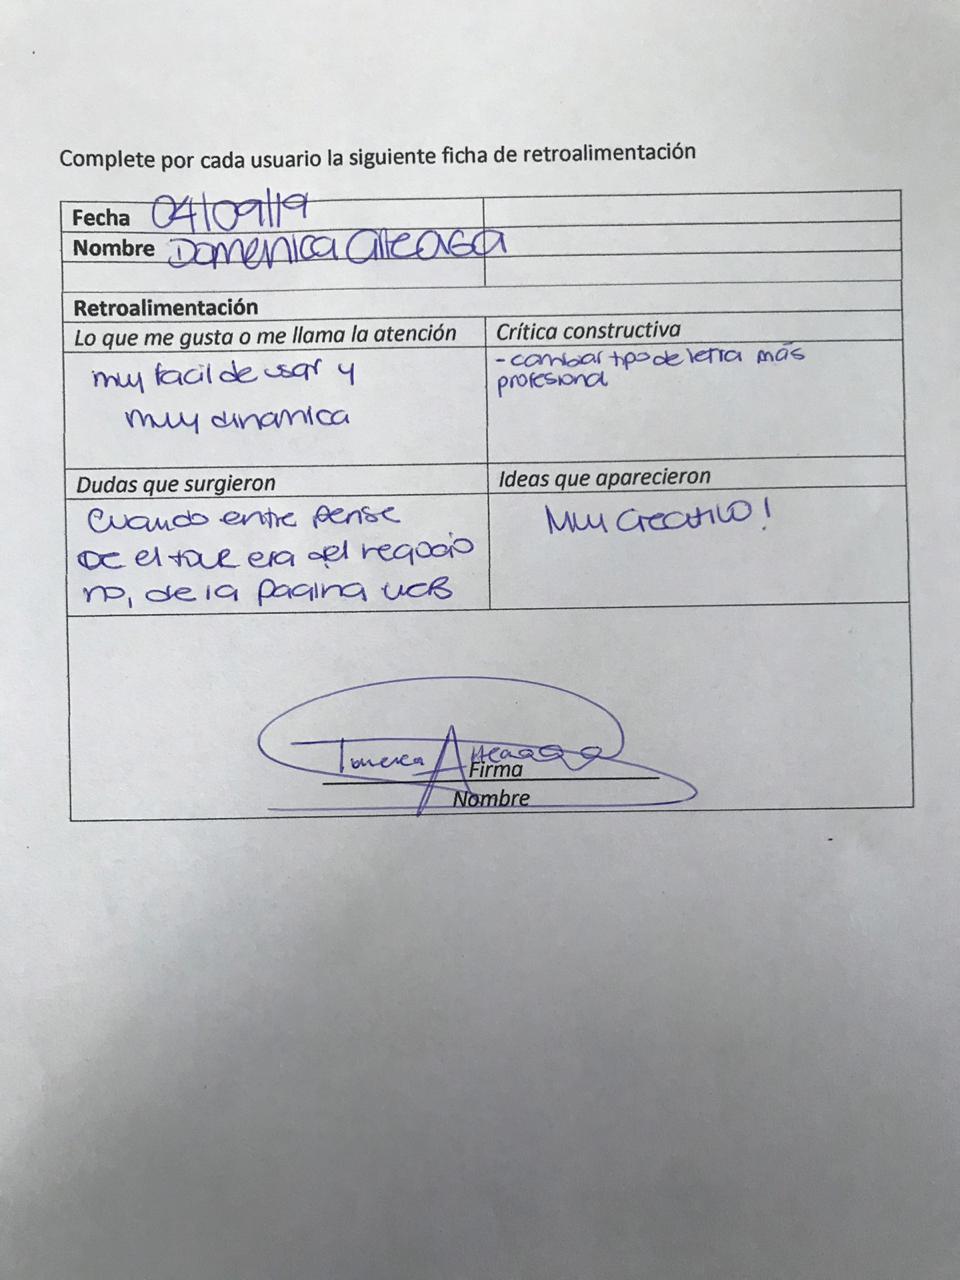 Complete por cada usuario la siguiente ficha de retroalimentación
Fecha 04/09/19
Nombre Domenica Arteaga
Retroalimentación
Lo que me gusta o me llama la atención
Crítica constructiva
muy facil de usar y
muy dinamica
- cambiar tipo de letra más
profesional
Dudas que surgieron
Ideas que aparecieron
Cuando entre pense
QE el tour era del negocio
no, de la pagina web
Muy creativo!
Arteaga
Firma
Nombre